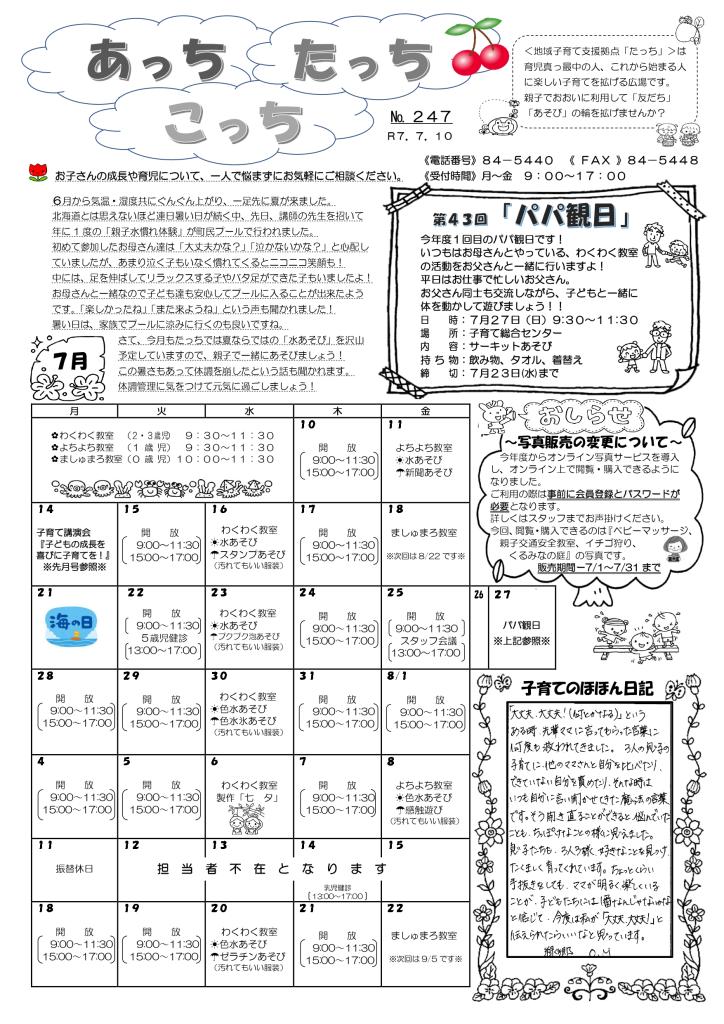 あっち たっち
こっち
№ 247
R7. 7. 10
＜地域子育て支援拠点「たっち」＞は
育児真っ最中の人、これから始まる人
に楽しい子育てを拡げる広場です。
親子でおおいに利用して「友だち」
「あそび」の輪を拡げませんか？
《電話番号》84－5440 《 FAX 》84－5448
お子さんの成長や育児について、一人で悩まずにお気軽にご相談ください。
《受付時間》月～金 9：00～17：00
6月から気温・湿度共にぐんぐん上がり、一足先に夏が来ました。
北海道とは思えないほど連日暑い日が続く中、先日、講師の先生を招いて
年に1度の「親子水慣れ体験」が町民プールで行われました。
初めて参加したお母さん達は「大丈夫かな？」「泣かないかな？」と心配し
ていましたが、あまり泣く子もいなく慣れてくるとニコニコ笑顔も！
中には、足を伸ばしてリラックスする子やバタ足ができた子もいましたよ！
お母さんと一緒なので子ども達も安心してプールに入ることが出来たよう
です。「楽しかったね」「また来ようね」という声も聞かれました！
暑い日は、家族でプールに涼みに行くのも良いですね。
さて、今月もたっちでは夏ならではの「水あそび」を沢山
予定していますので、親子で一緒にあそびましょう！
この暑さもあって体調を崩したという話も聞かれます。
体調管理に気をつけて元気に過ごしましょう！
7月
第43回「パパ観日」
今年度1回目のパパ観日です！
いつもはお母さんとやっている、わくわく教室
の活動をお父さんと一緒に行いますよ！
平日はお仕事で忙しいお父さん。
お父さん同士も交流しながら、子どもと一緒に
体を動かして遊びましょう！！
日 時：7月27日（日）9：30～11：30
場 所：子育て総合センター
内 容：サーキットあそび
持 ち 物：飲み物、タオル、着替え
締 切：7月23日(水)まで
月 火 水 木 金
✿わくわく教室 （2・3歳児） 9：30～11：30
✿よちよち教室 （1 歳 児） 9：30～11：30
✿ましゅまろ教室（0 歳 児）10：00～11：30
10
開 放
9:00～11:30
15:00～17:00
11
よちよち教室
☀水あそび
☂新聞あそび
14
子育て講演会
『子どもの成長を
喜びに子育てを！』
※先月号参照※
15
開 放
9:00～11:30
15:00～17:00
16
わくわく教室
☀水あそび
☂スタンプあそび
（汚れてもいい服装）
17
開 放
9:00～11:30
15:00～17:00
18
ましゅまろ教室
※次回は 8/22 です※
21
海の日
22
開 放
9:00～11:30
5歳児健診
13:00～17:00
23
わくわく教室
☀水あそび
☂ブクブク泡あそび
（汚れてもいい服装）
24
開 放
9:00～11:30
15:00～17:00
25
開 放
9:00～11:30
スタッフ会議
13:00～17:00
26
27
パパ観日
※上記参照※
28
開 放
9:00～11:30
15:00～17:00
29
開 放
9:00～11:30
15:00～17:00
30
わくわく教室
☀色水あそび
☂色水氷あそび
（汚れてもいい服装）
31
開 放
9:00～11:30
15:00～17:00
8/1
開 放
9:00～11:30
15:00～17:00
4
開 放
9:00～11:30
15:00～17:00
5
開 放
9:00～11:30
15:00～17:00
6
わくわく教室
製作「七 夕」
7
開 放
9:00～11:30
15:00～17:00
8
よちよち教室
☀色水あそび
☂感触遊び
（汚れてもいい服装）
11
振替休日
12 13 14 15
担 当 者 不 在 と な り ま す
乳児健診
13:00～17:00
18
開 放
9:00～11:30
15:00～17:00
19
開 放
9:00～11:30
15:00～17:00
20
わくわく教室
☀色水あそび
☂ゼラチンあそび
（汚れてもいい服装）
21
開 放
9:00～11:30
15:00～17:00
22
ましゅまろ教室
※次回は 9/5 です※
おしらせ
～写真販売の変更について～
今年度からオンライン写真サービスを導入
し、オンライン上で閲覧・購入できるように
なりました。
ご利用の際は事前に会員登録とパスワードが
必要となります。
詳しくはスタッフまでお声掛けください。
今回、閲覧・購入できるのは『ベビーマッサージ、
親子交通安全教室、イチゴ狩り、
くるみなの庭』の写真です。
販売期間－7/1～7/31 まで
子育てのほほん日記
「大丈夫、大丈夫！（何とかなる）」という
ある時、先輩ママに言ってもらった言葉に
何度も救われてきました。3人の男の子の
子育てに、他のママさんと自分を比べたり、
できていない自分を責めたり、そんな時は
いつも自分に言い聞かせてきた魔法の言葉
です。そう開き直ることができると、悩んでいた
ことも、ちっぽけなことの様に見えました。
息子たちも、3人3様、好きなことを見つけ、
たくましく育ってくれています。ちょっとくらい
手抜きをしても、ママが明るく、楽しくいる
ことが、子どもたちには1番なんじゃないかな
と感じて、今度は私が「大丈夫、大丈夫！」と
伝えられたらいいなと思っています。
O.M